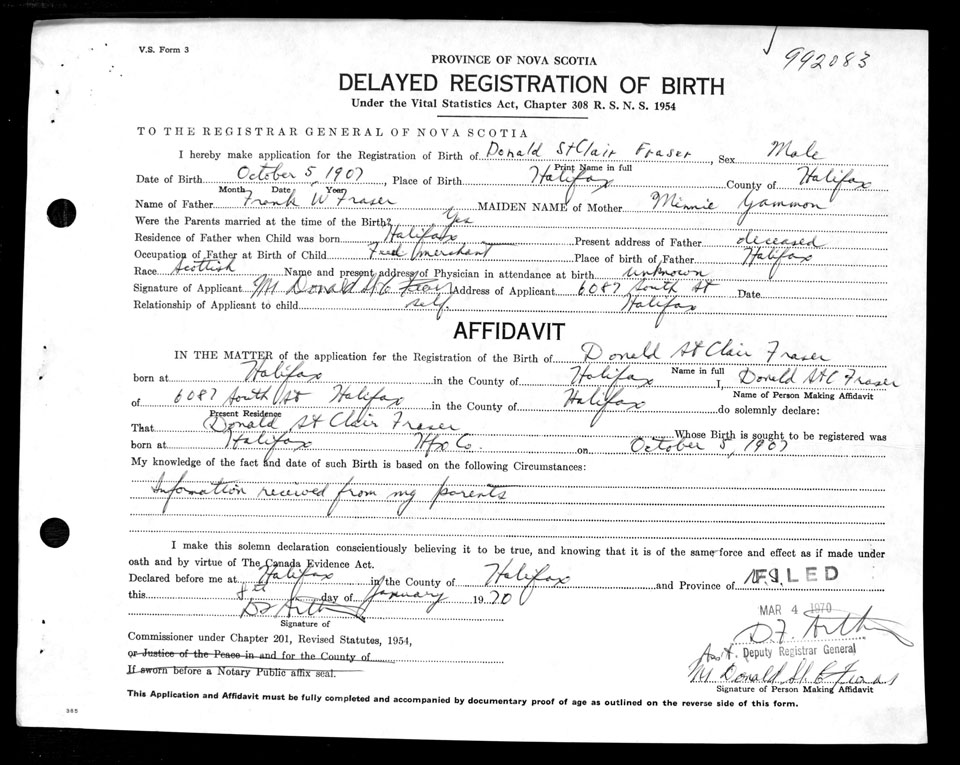 V.S. Form 3
992083
PROVINCE OF NOVA SCOTIA
DELAYED REGISTRATION OF BIRTH
Under the Vital Statistics Act, Chapter 308 R. S. N. S. 1954
TO THE REGISTRAR GENERAL OF NOVA SCOTIA
I hereby make application for the Registration of Birth of Donald StClair Fraser, Sex Male
Print Name in full
Date of Birth October 5, 1907, Place of Birth Halifax County of Halifax
Month Date Year
Name of Father Frank W Fraser MAIDEN NAME of Mother Minnie Gammon
Were the Parents married at the time of the Birth? Yes
Residence of Father when Child was born Halifax Present address of Father deceased
Occupation of Father at Birth of Child Feed merchant Place of birth of Father Halifax
Race Scottish Name and present address of Physician in attendance at birth unknown
Signature of Applicant M Donald St C Address of Applicant 6087 South St Date
Relationship of Applicant to child self Halifax
AFFIDAVIT
IN THE MATTER of the application for the Registration of the Birth of Donald St Clair Fraser
Name in full
born at Halifax in the County of Halifax I, Donald St C Fraser
Name of Person Making Affidavit
of 6087 South St Halifax in the County of Halifax do solemnly declare:
Present Residence
That Donald St Clair Fraser Whose Birth is sought to be registered was
born at Halifax Hfx Co. on October 5, 1907
My knowledge of the fact and date of such Birth is based on the following Circumstances:
Information received from my parents
I make this solemn declaration conscientiously believing it to be true, and knowing that it is of the same force and effect as if made under
oath and by virtue of The Canada Evidence Act.
Declared before me at Halifax in the County of Halifax and Province of N.S.
FILED
this 8th day of January 1970
MAR 4 1970
Signature of
D.F.
Commissioner under Chapter 201, Revised Statutes, 1954,
Asst. Deputy Registrar General
or Justice of the Peace in and for the County of
M Donald St. C
If sworn before a Notary Public affix seal.
Signature of Person Making Affidavit
This Application and Affidavit must be fully completed and accompanied by documentary proof of age as outlined on the reverse side of this form.
985